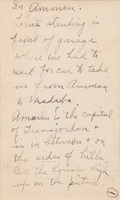 In Amman.
standing in
front of garage
where we had to
wait for car to take
us from Amman
to Madaba.
Amman is the capital
of Transjordan +
is in between + on
the sides of hills
the houses high
up in the